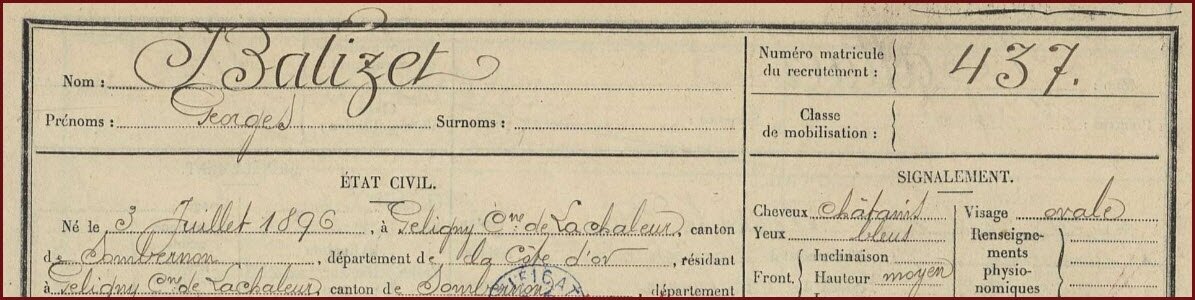 Nom : Balizet
Prénoms : Georges Surnoms :
Numéro matricule
du recrutement : 437.
Classe
de mobilisation :
ÉTAT CIVIL.
Né le 3 Juillet 1896, à Geligny Cne de Lachaleur, canton
de Sombernon, département de la Côte d'or, résidant
à Geligny Cne de Lachaleur canton de Sombernon
SIGNALEMENT.
Cheveux châtains
Yeux bleus
Front. Inclinaison
Hauteur moyen
Visage ovale
Renseigne-
ments
physio-
nomiques